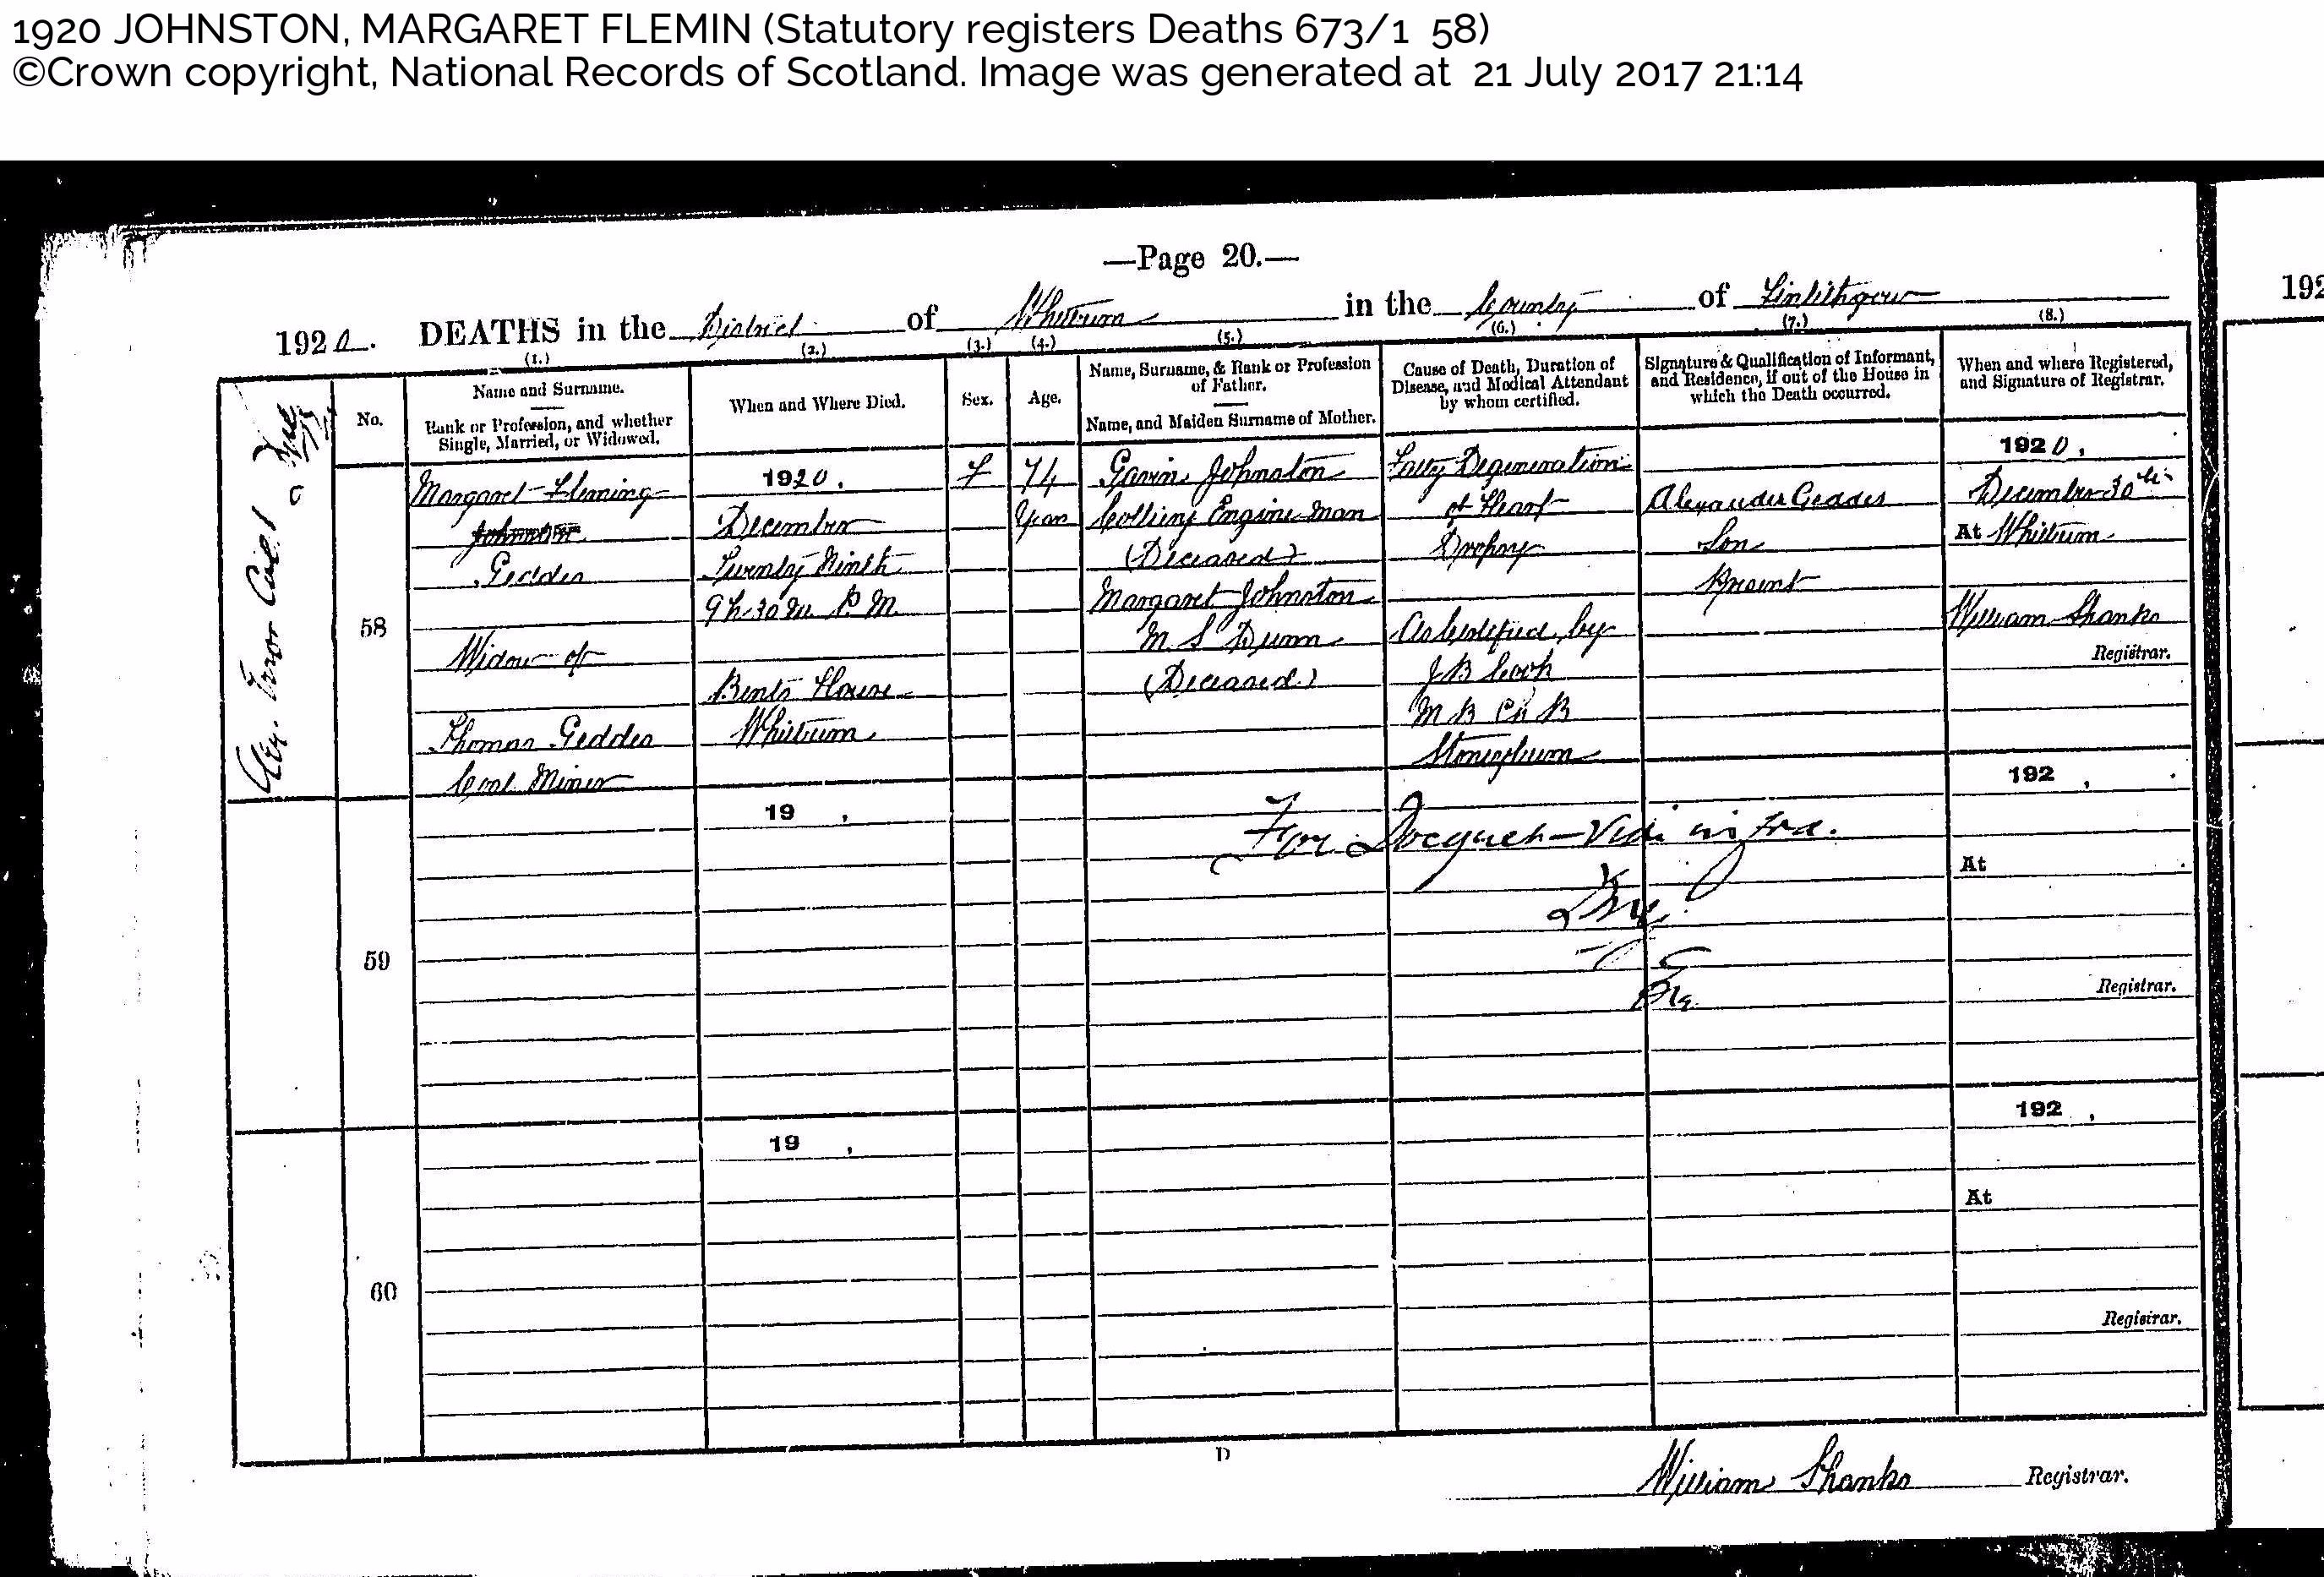 1920 JOHNSTON, MARGARET FLEMIN (Statutory registers Deaths 673/1 58)
©Crown copyright, National Records of Scotland. Image was generated at 21 July 2017 21:14
—Page 20.—
192
1920. DEATHS in the District of Whitburn in the County of Linlithgow
(1.) (2.) (3.) (4.) (5.) (6.) (7.) (8.)
No.
Name and Surname.
Rank or Profession, and whether
Single, Married, or Widowed.
When and Where Died.
Sex.
Age.
Name, Surname, & Rank or Profession
of Father.
Name, and Maiden Surname of Mother.
Cause of Death, Duration of
Disease, and Medical Attendant
by whom certified.
Signature & Qualification of Informant,
and Residence, if out of the House in
which the Death occurred.
When and where Registered,
and Signature of Registrar.
Error
58
Margaret Fleming
Johnston
Geddes
Widow of
Thomas Geddes
Coal Miner
1920,
December
Twenty Ninth
9h 30m P.M.
Bents House
Whitburn
F
74
Years
Gavin Johnston
Colliery Engine-man
(Deceased)
Margaret Johnston
M. S. Dunn
(Deceased)
Fatty Degeneration
of Heart
Dropsy
As Certified by
J B Cook
M B Ch B
Stoneyburn
Alexander Geddes
Son
Present
1920,
December 30th
At Whitburn
William Shanks
Registrar.
59
19 ,
For Docquet—Vide infra.
192 ,
At
Registrar.
60
19 ,
192 ,
At
Registrar.
D
William Shanks Registrar.